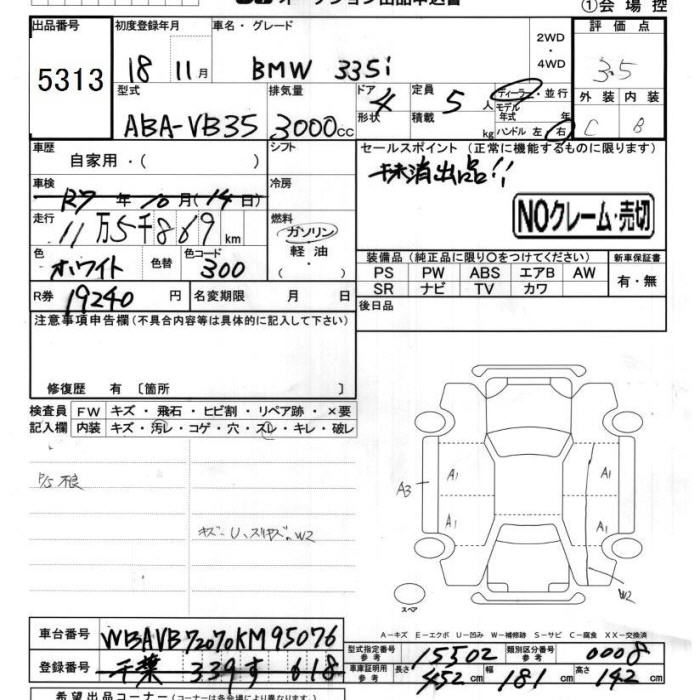 オークション出品申込書
①会場控
出品番号 初度登録年月 車名・グレード 評価点
5313 18 11月 BMW 335i 2WD・4WD 3.5
型式 排気量 ドア 形状 定員 積載 ディーラー・並行 モデル年式 年 外装 内装
ABA-VB35 3000cc 4 5人 kg ハンドル 左・右 C B
車歴 シフト セールスポイント(正常に機能するものに限ります)
自家用・( ) 抹消出品!!
車検 冷房
R7年10月(14日)
NOクレーム・売切
走行 燃料
11万5千869km ガソリン
軽油・( )
色 色替 色コード
ホワイト 300
装備品(純正品に限り○をつけてください) 新車保証書
PS PW ABS エアB AW 有・無
SR ナビ TV カワ
R券 19240円 名変期限 月 日 後日品
注意事項申告欄(不具合内容等は具体的に記入して下さい)
修復歴 有〔箇所 〕
検査員 FW キズ・飛石・ヒビ割・リペア跡・×要
記入欄 内装 キズ・汚レ・コゲ・穴・スレ・キレ・破レ
P/S 不良
キズ、U、スリキズ、W2
A1 A1
A3
A1 A1
W2
スペア
A-キズ E-エクボ U-凹み W-補修跡 S-サビ C-腐食 XX-交換済
車台番号 WBAVB72070KM95076
型式指定番号 参考 15502 類別区分番号 参考 0008
登録番号 千葉 339 す 618
車庫証明用 参考 長さ 452cm 幅 181cm 高さ 142cm
希望出品コーナー(コーナーは各会場により異なります)